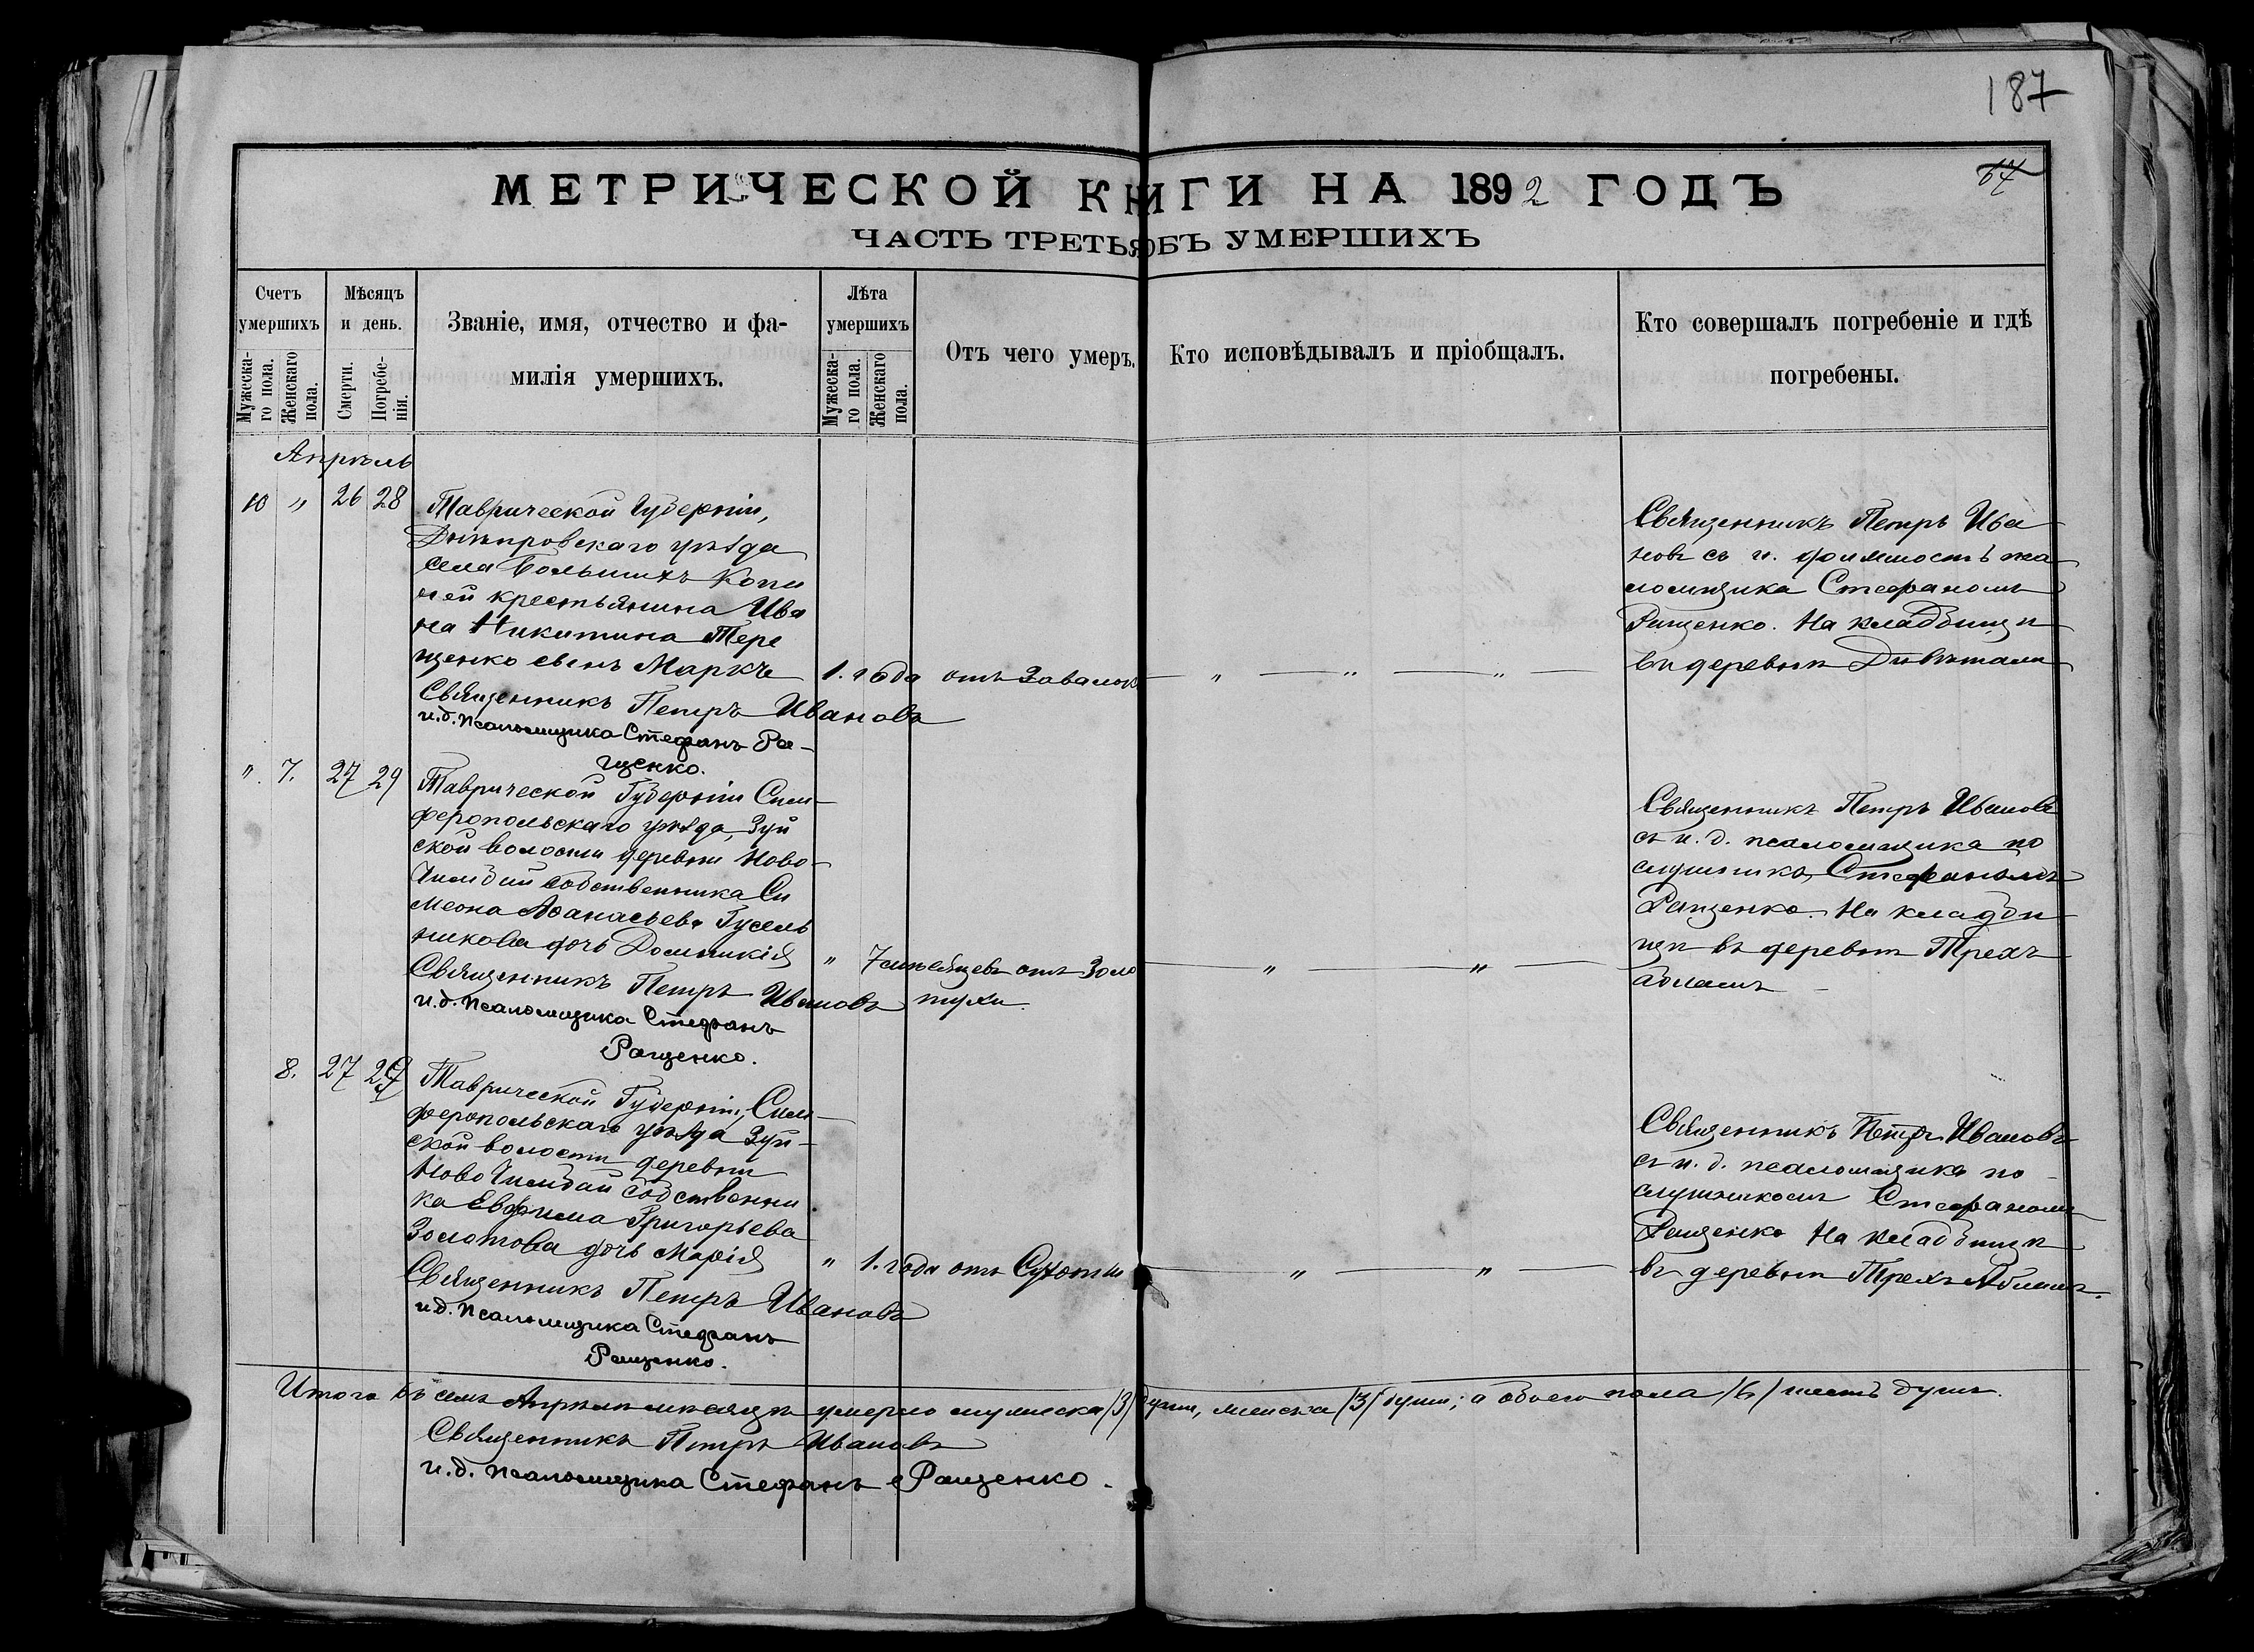 187
67
МЕТРИЧЕСКОЙ КНИГИ НА 1892 ГОДЪ
ЧАСТЬ ТРЕТЬЯ ОБЪ УМЕРШИХЪ
Счетъ умершихъ
Мужеска-го пола.
Женскаго пола.
Мѣсяцъ и день.
Смерти.
Погребе-нія.
Званіе, имя, отчество и фа-
милія умершихъ.
Лѣта умершихъ
Мужеска-го пола.
Женскаго пола
Отъ чего умеръ.
Кто исповѣдывалъ и пріобщалъ.
Кто совершалъ погребеніе и гдѣ
погребены.
Апрѣль
10 " 26 28
Таврической Губерніи,
Днѣпровскаго уѣзда
села Большихъ Копа
ней крестьянина Ива
на Никитина Тере
щенко сынъ Маркъ
1. года
отъ Завалок
" " "
Священникъ Петръ Ивановъ
и.д. псаломщика Стефанъ Ра-
щенко.
Священникъ Петръ Ива
новъ съ и. должность пса
ломщика Стефаномъ
Ращенко. На кладбищѣ
въ деревнѣ
" 7. 27 29
Таврической Губерніи Сим-
феропольскаго уѣзда, Зуй
ской волости деревни Ново-
собственника Си
меона Аѳанасьева Гусель
никова дочь Домникія
" 7 мѣсяцевъ
отъ Золо
тухи
" "
Священникъ Петръ Ивановъ
и.д. псаломщика Стефанъ
Ращенко.
Священникъ Петръ Ивановъ
съ и. д. псаломщика по
слушника Стефаномъ
Ращенко. На кладби
щѣ въ деревнѣ Трехъ
абламъ
8. 27 29
Таврической Губерніи, Сим-
феропольскаго уѣзда Зуй-
ской волости деревни
Ново собственни
ка Евфима Григорьева
Золотова дочь Марія
" 1. года
отъ Сухоты
" "
Священникъ Петръ Ивановъ
и.д. псаломщика Стефанъ
Ращенко.
Священникъ Петръ Ивановъ
съ и. д. псаломщика по-
слушникомъ Стефаномъ
Ращенко На кладбищѣ
въ деревнѣ Трехъ Абламъ.
Итого въ семъ Апрѣлѣ мѣсяцѣ умерло мужеска /3/ души, женска /3/ души; а обоего пола /6/ шесть душъ.
Священникъ Петръ Ивановъ
и.д. псаломщика Стефанъ Ращенко.